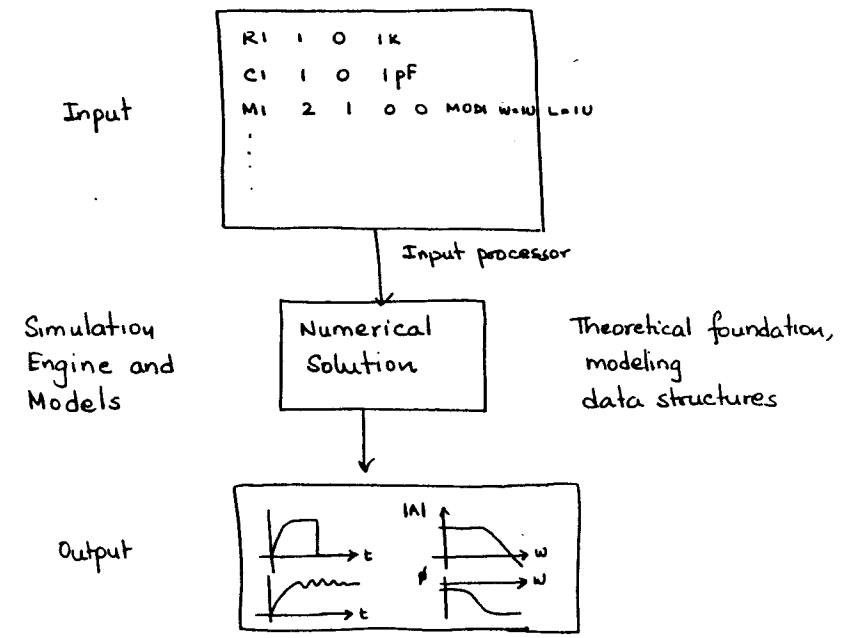 R1 1 0 1K
C1 1 0 1pF
Input
M1 2 1 0 0 MOD1 W=1U L=1U
Input processor
Simulation
Engine and
Models
Numerical
Solution
Theoretical foundation,
modeling
data structures
Output
t
t
|A|
w
ϕ
w